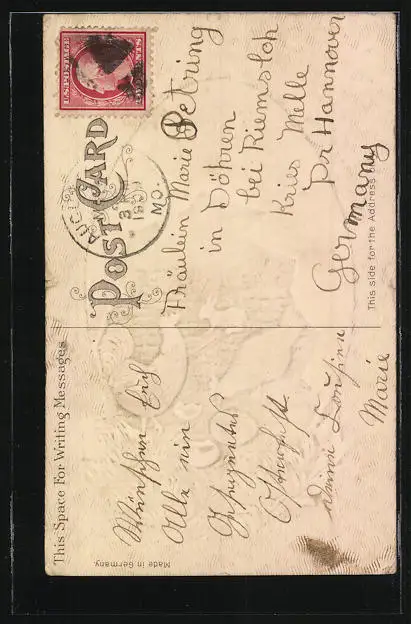 This Space For Writing Messages
POST CARD
This side for the Address
U.S. POSTAGE
MO.
Wünschen Euch
Alle ein
Gesegnetes
Osterfest.
deine Cousine
Marie
Fräulein Marie Petring
in Döhren
bei Riemsloh
Kries Melle
Pr Hannover
Germany
Made in Germany.